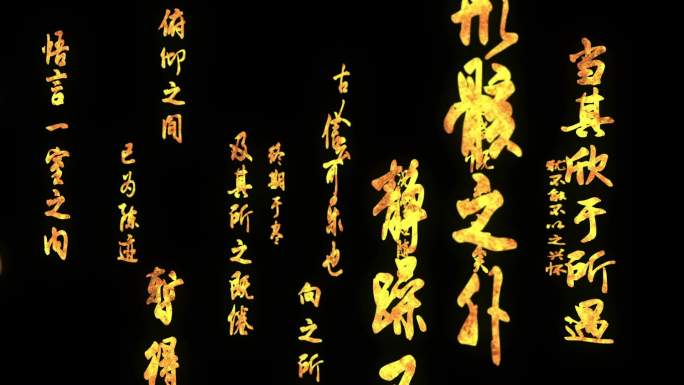 当其欣于所遇
犹不能不以之兴怀
形骸之外
静躁不
信可乐也
向之所
终期于尽
及其所之既倦
暂得
俯仰之间
已为陈迹
悟言一室之内